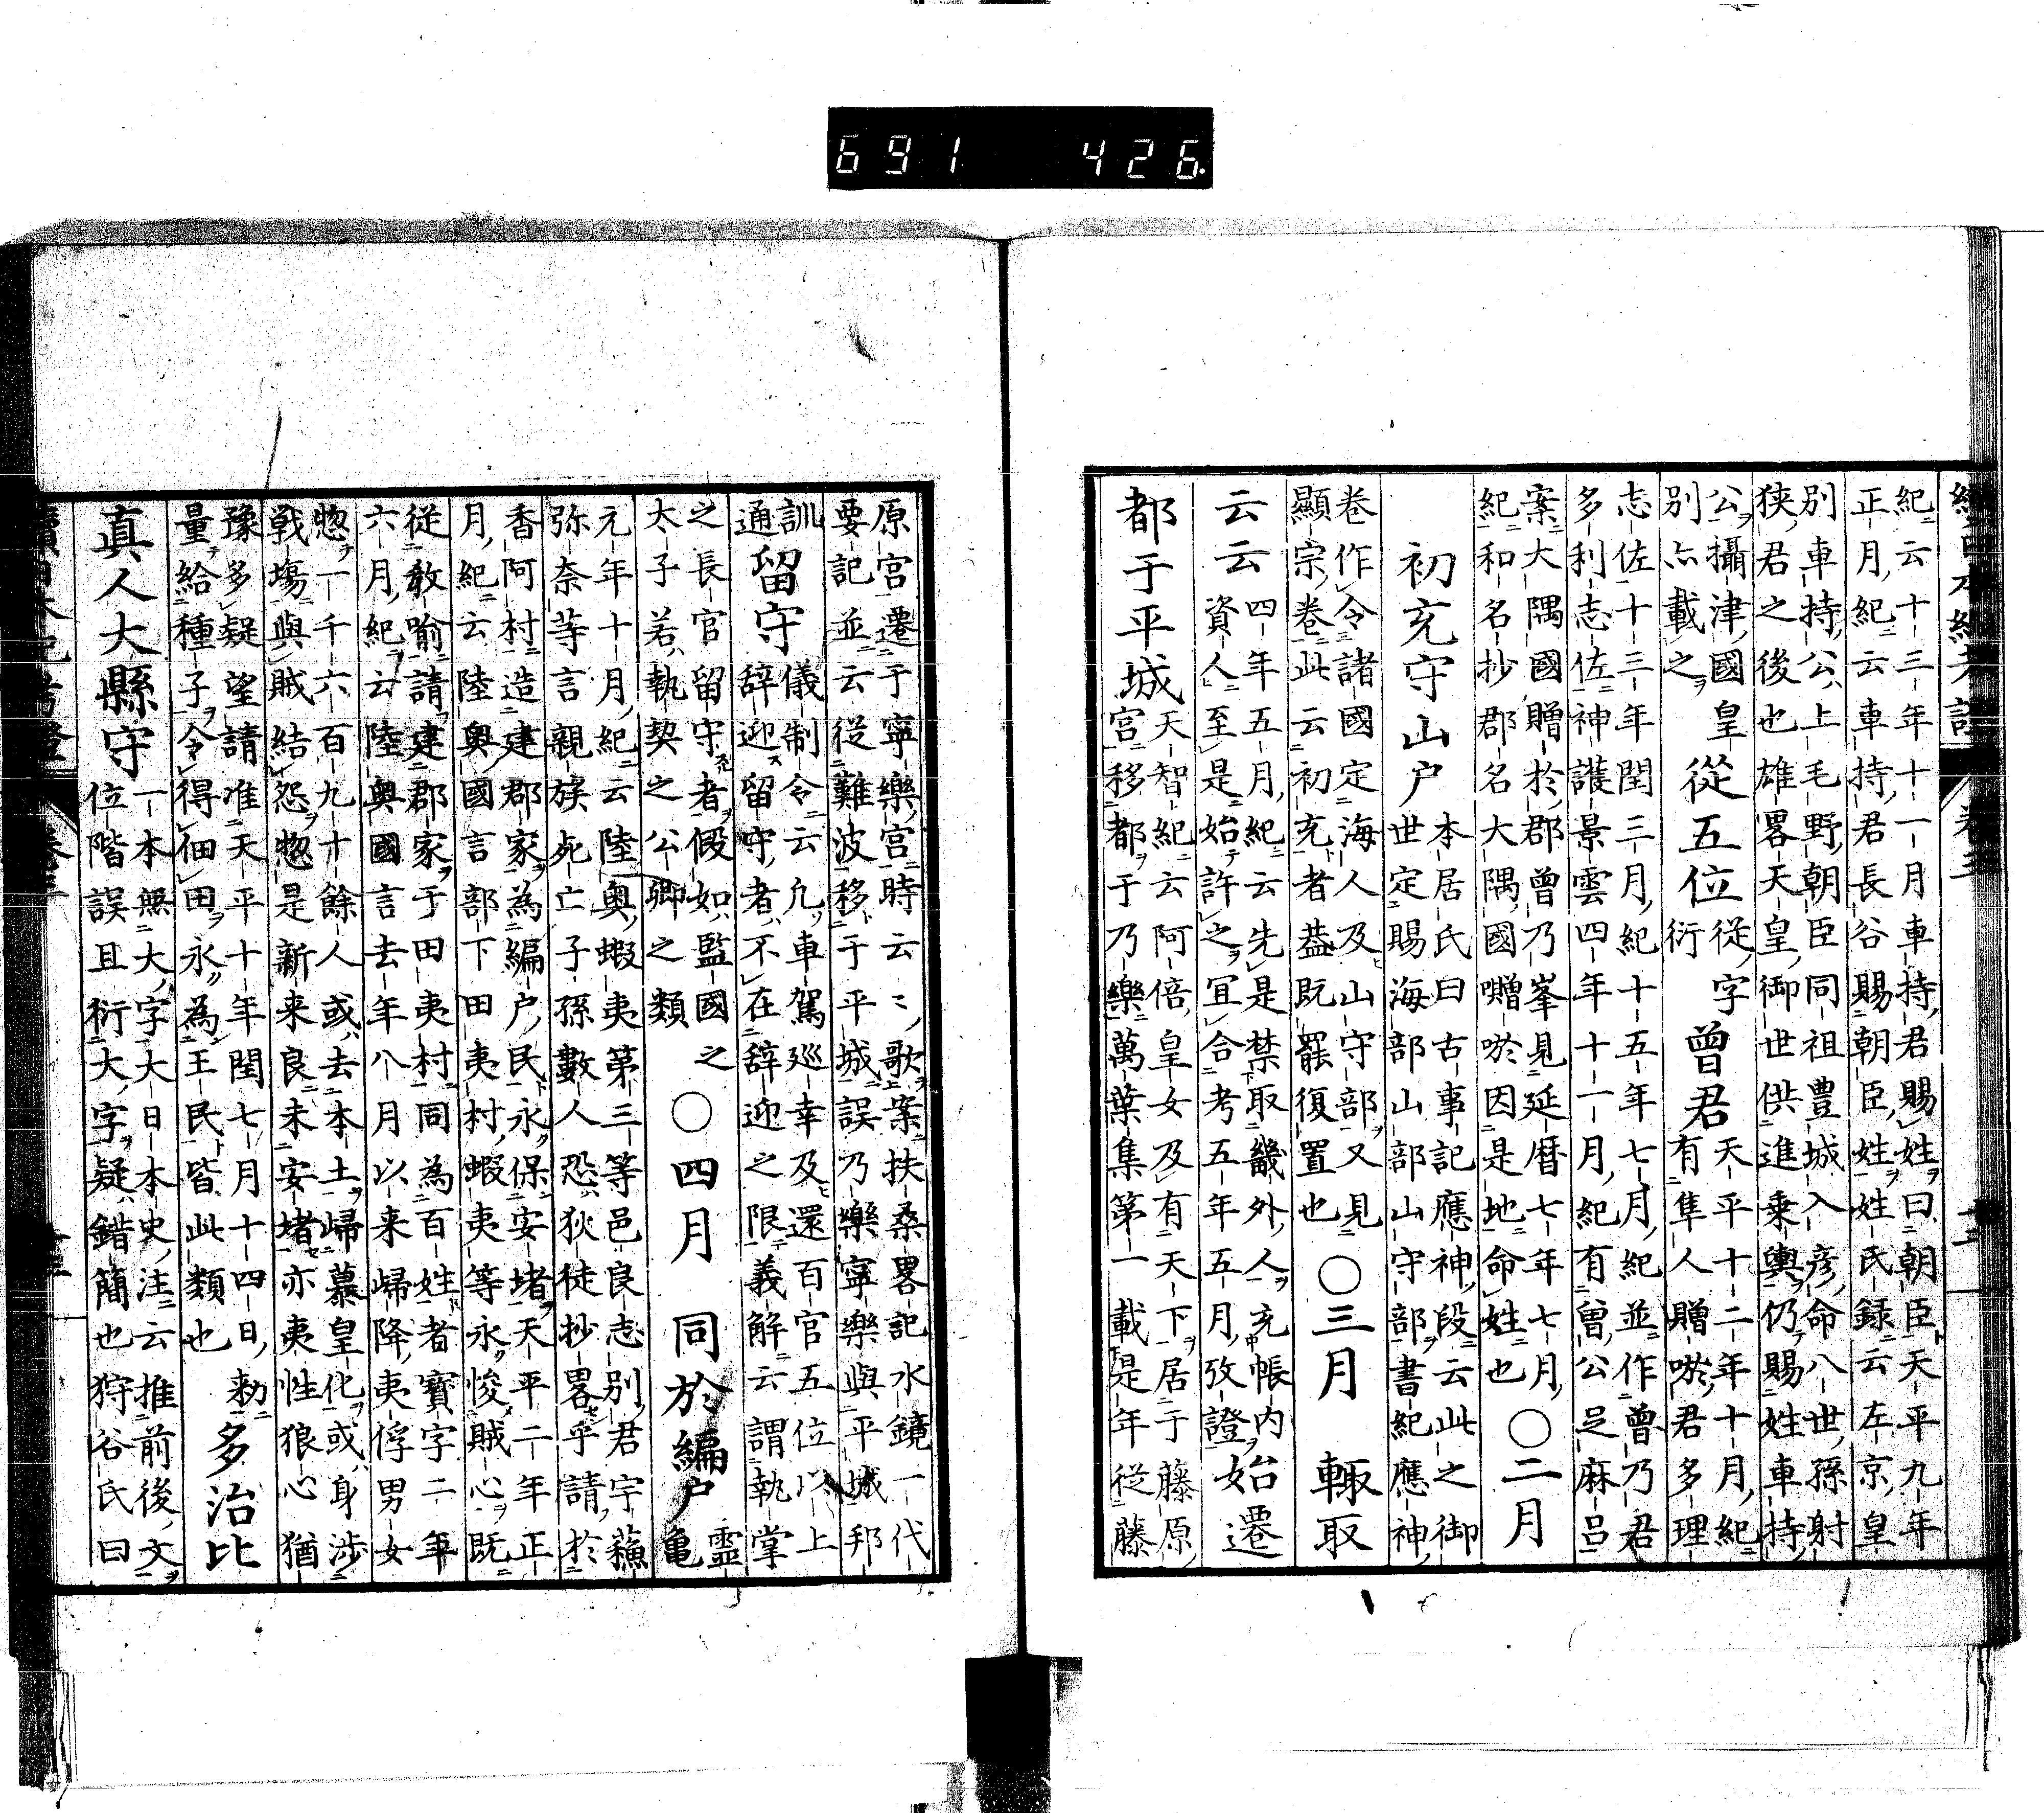 691 426
紀云十三年十一月車持君賜姓曰朝臣天平九年
正月紀云車持君長谷賜朝臣姓姓氏録云左京皇
別車持公上毛野朝臣同祖豊城入彦命八世孫射
狭君之後也雄畧天皇御世供進乗輿仍賜姓車持
公攝津國皇
別亦載之
從五位
從字
衍
曾君
天平十二年十月紀
有隼人贈唹君多理
志佐十三年閏三月紀十五年七月紀並作曾乃君
多利志佐神護景雲四年十一月紀有曽公足麻呂
案大隅國贈於郡曾乃峯見延暦七年七月
紀和名抄郡名大隅國囎唹因是地命姓也
○二月
初充守山户
本居氏曰古事記應神段云此之御
世定賜海部山部山守部書紀應神
卷作令諸國定海人及山守部又見
顯宗卷此云初充者葢既罷復置也
○三月
輙取
云云
四年五月紀云先是禁取畿外人充帳内
資人至是始許之冝合考五年五月攷證
始遷
都于平城
天智紀云阿倍皇女及有天下居于藤原
宮移都于乃樂萬葉集第一載是年從藤
原宮遷于寧樂宮時云〻歌案扶桑畧記水鏡一代
要記並云從難波移于平城誤乃樂寧樂與平城邦
訓
通
留守
儀制令云凢車駕廵幸及還百官五位以上
辞迎留守者不在辞迎之限義解云謂執掌
之長官留守者假如監國之
太子若執契之公卿之類
○四月
同於編户
靈
亀
元年十月紀云陸奥蝦夷第三等邑良志別君宇蘓
弥奈等言親族死亡子孫數人恐狄徒抄畧乎請於
香阿村造建郡家為編户民永保安堵天平二年正
月紀云陸奥國言部下田夷村蝦夷等永悛賊心既
從教喻請建郡家于田夷村同為百姓者寳字二年
六月紀云陸奥國言去年八月以来歸降夷俘男女
惣一千六百九十餘人或去本土歸慕皇化或身渉
戦塲與賊結怨惣是新来良未安堵亦夷性狼心猶
豫多疑望請准天平十年閏七月十四日勅
量給種子令得佃田永為王民皆此類也
多治比
真人大縣守
一本無大字大日本史注云推前後文
位階誤且衍大字疑錯簡也狩谷氏曰